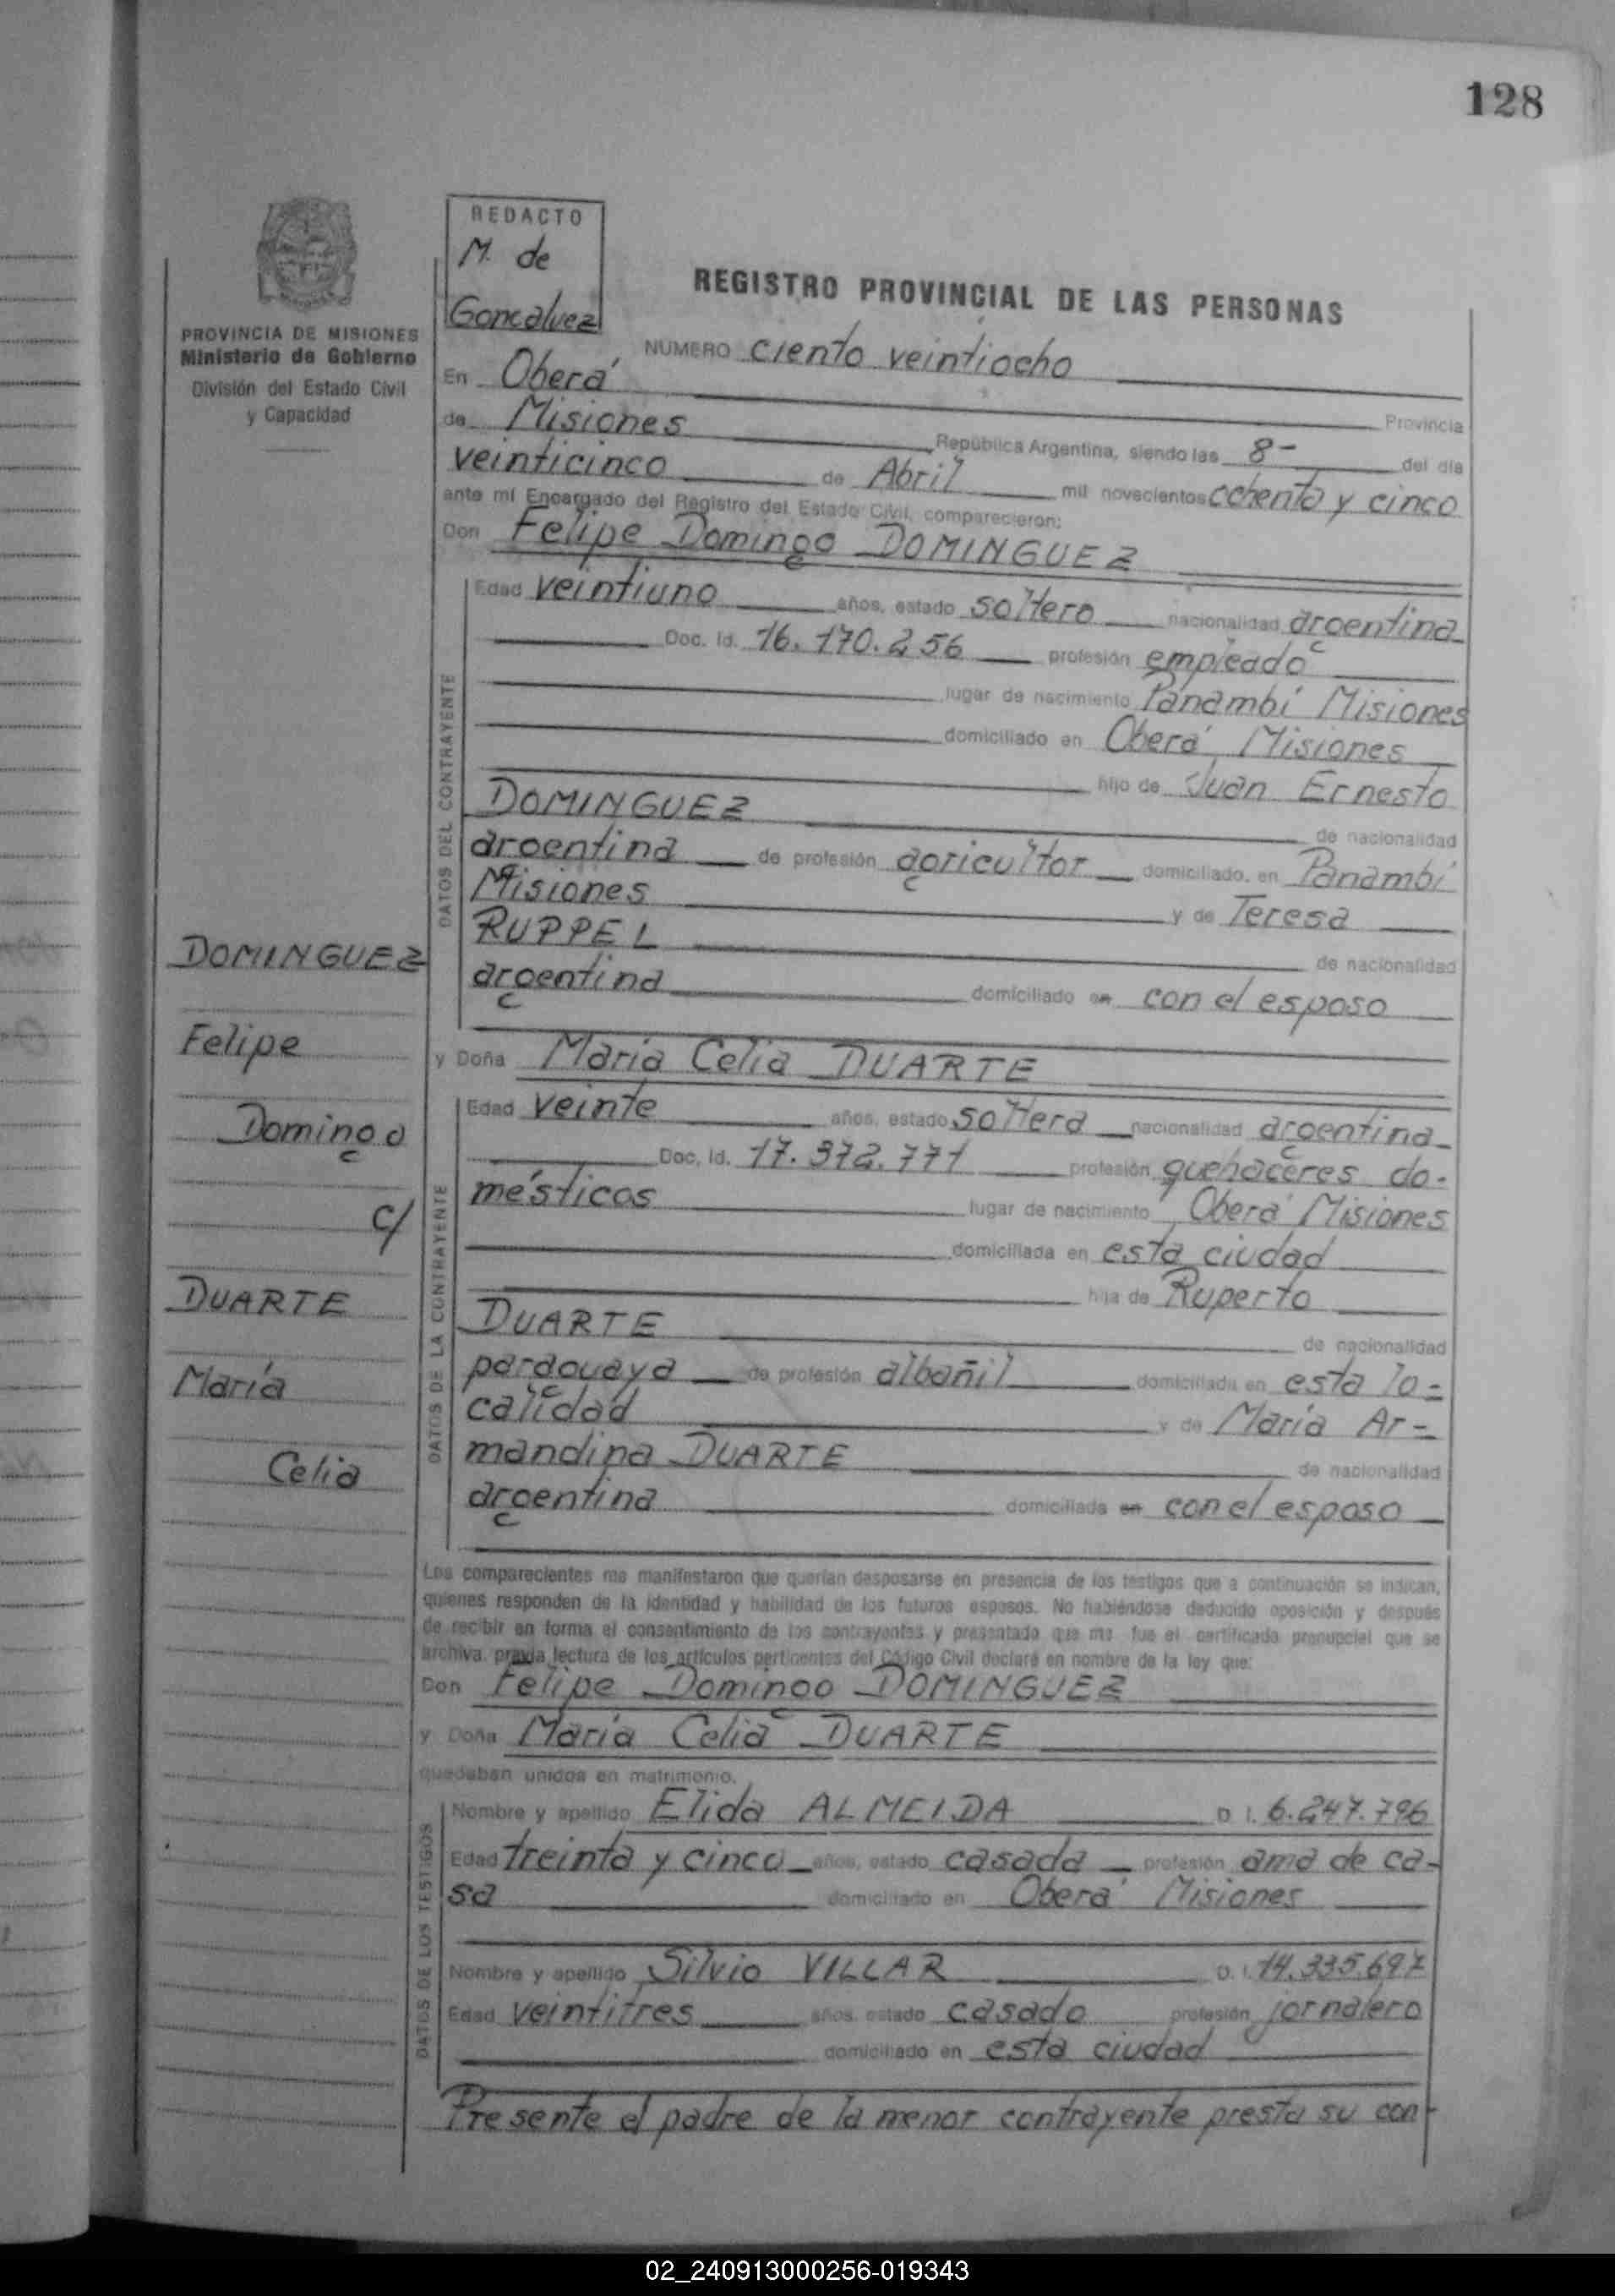 128
REDACTO
M. de
Goncalvez
REGISTRO PROVINCIAL DE LAS PERSONAS
PROVINCIA DE MISIONES
Ministerio de Gobierno
División del Estado Civil
y Capacidad
NUMERO ciento veintiocho
En Oberá Provincia
de Misiones República Argentina, siendo las 8- del día
veinticinco de Abril mil novecientos ochenta y cinco
ante mí Encargado del Registro del Estado Civil, comparecieron:
Don Felipe Domingo DOMINGUEZ
DATOS DEL CONTRAYENTE
Edad veintiuno años, estado soltero nacionalidad argentina
Doc. Id. 16.170.256 profesión empleado
lugar de nacimiento Panambí Misiones
domiciliado en Oberá Misiones
hijo de Juan Ernesto
DOMINGUEZ de nacionalidad
argentina de profesión agricultor domiciliado en Panambí
Misiones y de Teresa
RUPPEL de nacionalidad
argentina domiciliado en con el esposo
y Doña María Celia DUARTE
DATOS DE LA CONTRAYENTE
Edad veinte años, estado soltera nacionalidad argentina
Doc. Id. 17.372.771 profesión quehaceres do-
mésticos lugar de nacimiento Oberá Misiones
domiciliada en esta ciudad
hija de Ruperto
DUARTE de nacionalidad
paraguaya de profesión albañil domiciliada en esta lo=
calidad y de María Ar=
mandina DUARTE de nacionalidad
argentina domiciliada en con el esposo
DOMINGUEZ
Felipe
Domingo
c/
DUARTE
María
Celia
Los comparecientes me manifestaron que querían desposarse en presencia de los testigos que a continuación se indican,
quienes responden de la identidad y habilidad de los futuros esposos. No habiéndose deducido oposición y después
de recibir en forma el consentimiento de los contrayentes y presentado que me fue el certificado prenupcial que se
archiva, previa lectura de los artículos pertinentes del Código Civil declaré en nombre de la ley que:
Don Felipe Domingo DOMINGUEZ
y Doña María Celia DUARTE
quedaban unidos en matrimonio.
DATOS DE LOS TESTIGOS
Nombre y apellido Elida ALMEIDA D. I. 6.247.796
Edad treinta y cinco años, estado casada profesión ama de ca-
sa domiciliado en Oberá Misiones
Nombre y apellido Silvio VILLAR D. I. 14.335.697
Edad veintitres años, estado casado profesión jornalero
domiciliado en esta ciudad
Presente el padre de la menor contrayente presta su con-
02_240913000256-019343